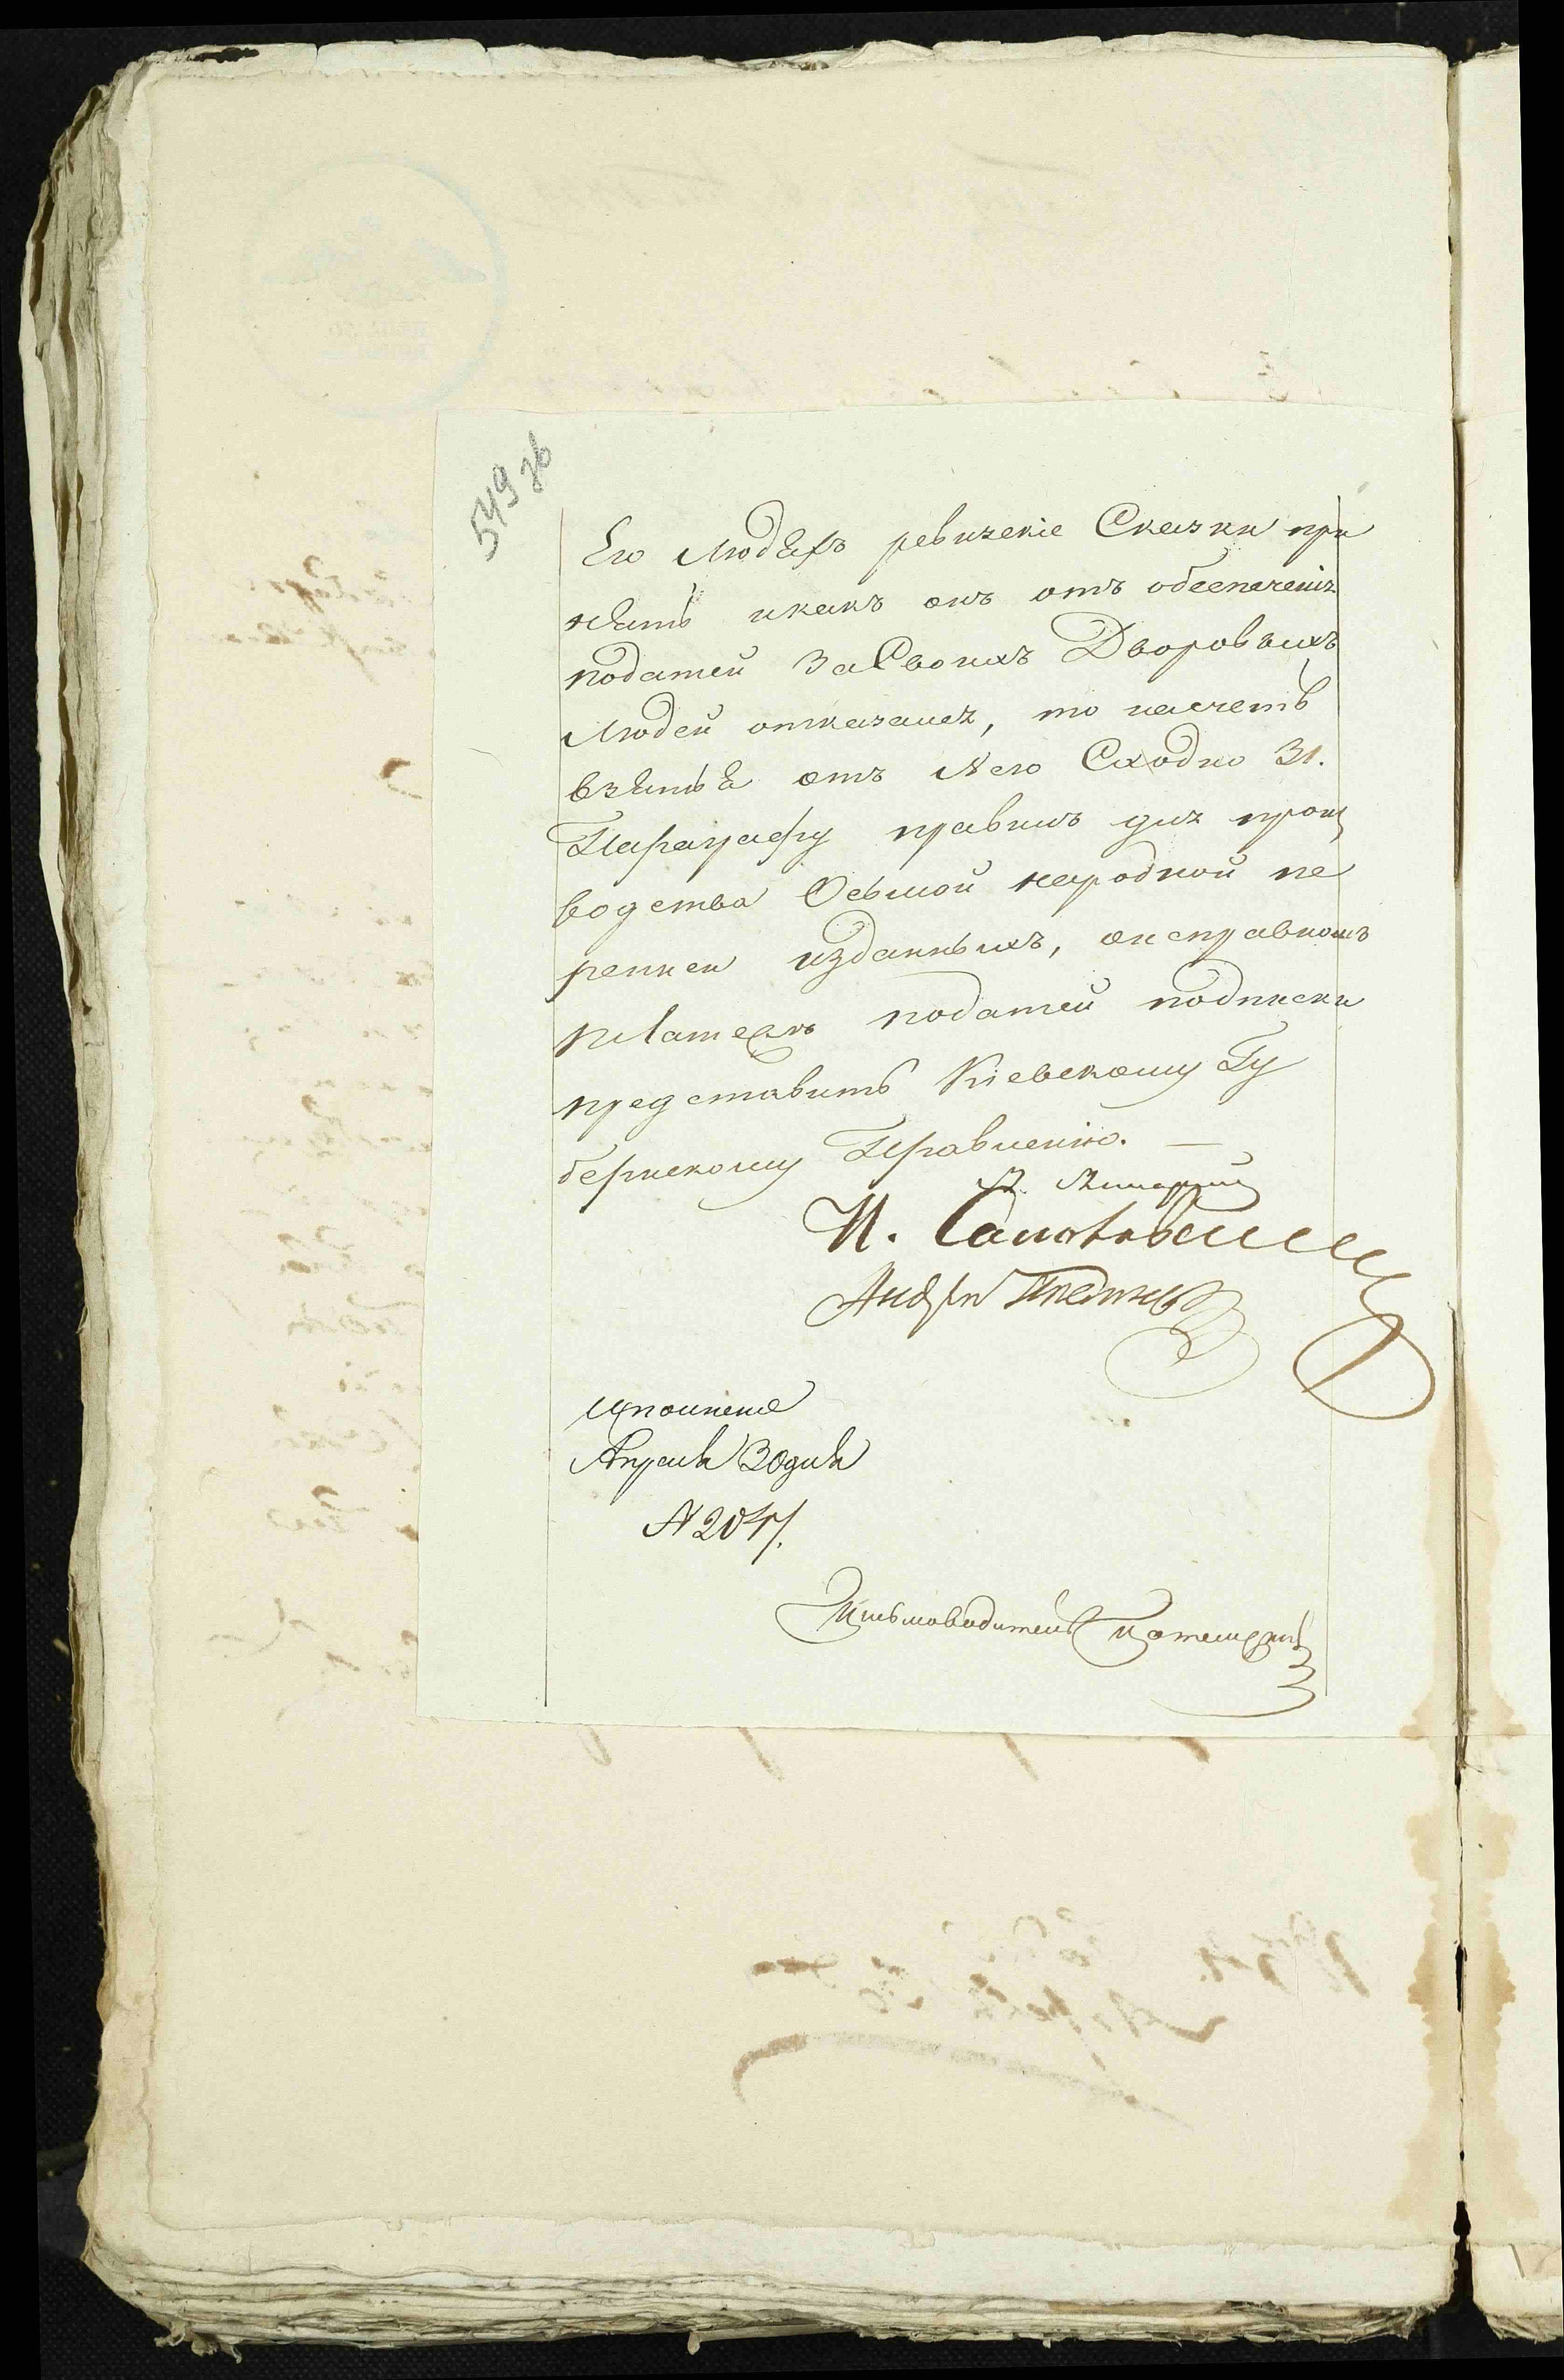 549 зв
Его людяхъ ревизскіе Сказки при
нять икакъ онъ отъ обеспеченія
податей За Своихъ Дворовыхъ
людей отказался, то насчетъ
взятья отъ Него Сходно 31.
Параграфу правилъ для произ
водства Осьмой народной пе
реписи изданныхъ, онеправномъ
платежѣ податей подписки
представить Кіевскому Гу
бернскому Правленію. —
И.
Андрей
исполнено
Апреля 30 дня
N 204/.
Письмоводитель